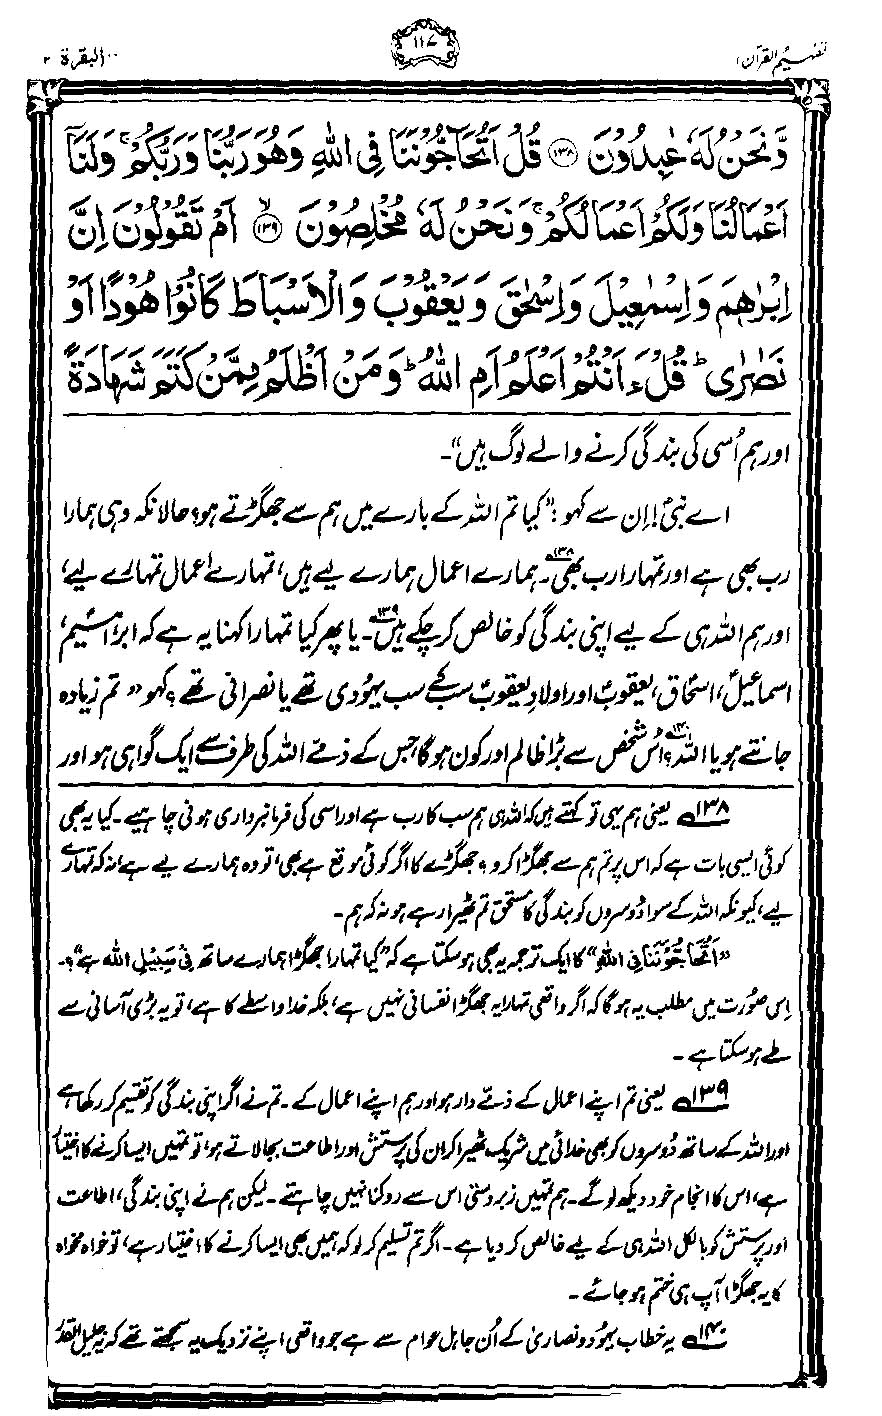 تفہیم القرآن ۱
۱۱۷
البقرۃ ۲
وَّنَحْنُ لَهٗ عٰبِدُوْنَ ۝۱۳۸ قُلْ اَتُحَآجُّوْنَنَا فِی اللّٰهِ وَهُوَ رَبُّنَا وَرَبُّكُمْ ۚ وَلَنَاۤ
اَعْمَالُنَا وَلَكُمْ اَعْمَالُكُمْ ۚ وَنَحْنُ لَهٗ مُخْلِصُوْنَ ۝۱۳۹ۙ اَمْ تَقُوْلُوْنَ اِنَّ
اِبْرٰهٖمَ وَاِسْمٰعِیْلَ وَاِسْحٰقَ وَیَعْقُوْبَ وَالْاَسْبَاطَ كَانُوْا هُوْدًا اَوْ
نَصٰرٰی ؕ قُلْ ءَاَنْتُمْ اَعْلَمُ اَمِ اللّٰهُ ؕ وَمَنْ اَظْلَمُ مِمَّنْ كَتَمَ شَهَادَةً
اور ہم اُسی کی بندگی کرنے والے لوگ ہیں“۔
اے نبیؐ! اِن سے کہو: ”کیا تم اللہ کے بارے میں ہم سے جھگڑتے ہو؟ حالانکہ وہی ہمارا
رب بھی ہے اور تمہارا رب بھی۱۳۸۔ ہمارے اعمال ہمارے لیے ہیں، تمہارے اعمال تمہارے لیے،
اور ہم اللہ ہی کے لیے اپنی بندگی کو خالص کر چکے ہیں۱۳۹۔ یا پھر کیا تمہارا کہنا یہ ہے کہ ابراہیمؑ،
اسماعیلؑ، اسحاقؑ، یعقوبؑ اور اولادِ یعقوبؑ سب کے سب یہودی تھے یا نصرانی تھے؟ کہو ”تم زیادہ
جانتے ہو یا اللہ۱۴۰؟ اُس شخص سے بڑا ظالم اور کون ہوگا جس کے ذمّے اللہ کی طرف سے ایک گواہی ہو اور
۱۳۸ یعنی ہم یہی تو کہتے ہیں کہ اللہ ہی ہم سب کا رب ہے اور اسی کی فرمانبرداری ہونی چاہیے۔ کیا یہ بھی
کوئی ایسی بات ہے کہ اس پر تم ہم سے جھگڑا کرو؟ جھگڑے کا اگر کوئی موقع ہے بھی، تو وہ ہمارے لیے ہے، نہ کہ تمہارے
لیے، کیونکہ اللہ کے سوا دُوسروں کو بندگی کا مستحق تم ٹھیرا رہے ہو نہ کہ ہم۔
”اَتُحَآجُّوْنَنَا فِی اللّٰهِ“ کا ایک ترجمہ یہ بھی ہو سکتا ہے کہ ”کیا تمہارا جھگڑا ہمارے ساتھ فِیْ سَبِیْلِ اللّٰه ہے“؟۔
اِس صُورت میں مطلب یہ ہوگا کہ اگر واقعی تمہارا یہ جھگڑا نفسانی نہیں ہے، بلکہ خدا واسطے کا ہے، تو یہ بڑی آسانی سے
طے ہو سکتا ہے۔
۱۳۹ یعنی تم اپنے اعمال کے ذمّے دار ہو اور ہم اپنے اعمال کے۔ تم نے اگر اپنی بندگی کو تقسیم کر رکھا ہے
اور اللہ کے ساتھ دُوسروں کو بھی خدائی میں شریک ٹھیرا کر ان کی پرستش اور اطاعت بجا لاتے ہو، تو تمہیں ایسا کرنے کا اختیار
ہے، اس کا انجام خود دیکھ لو گے۔ ہم تمہیں زبردستی اس سے روکنا نہیں چاہتے۔ لیکن ہم نے اپنی بندگی، اطاعت
اور پرستش کو بالکل اللہ ہی کے لیے خالص کر دیا ہے۔ اگر تم تسلیم کر لو کہ ہمیں بھی ایسا کرنے کا اختیار ہے، تو خواہ مخواہ
کا یہ جھگڑا آپ ہی ختم ہو جائے۔
۱۴۰ یہ خطاب یہود و نصاریٰ کے اُن جاہل عوام سے ہے جو واقعی اپنے نزدیک یہ سمجھتے تھے کہ یہ جلیل القدر